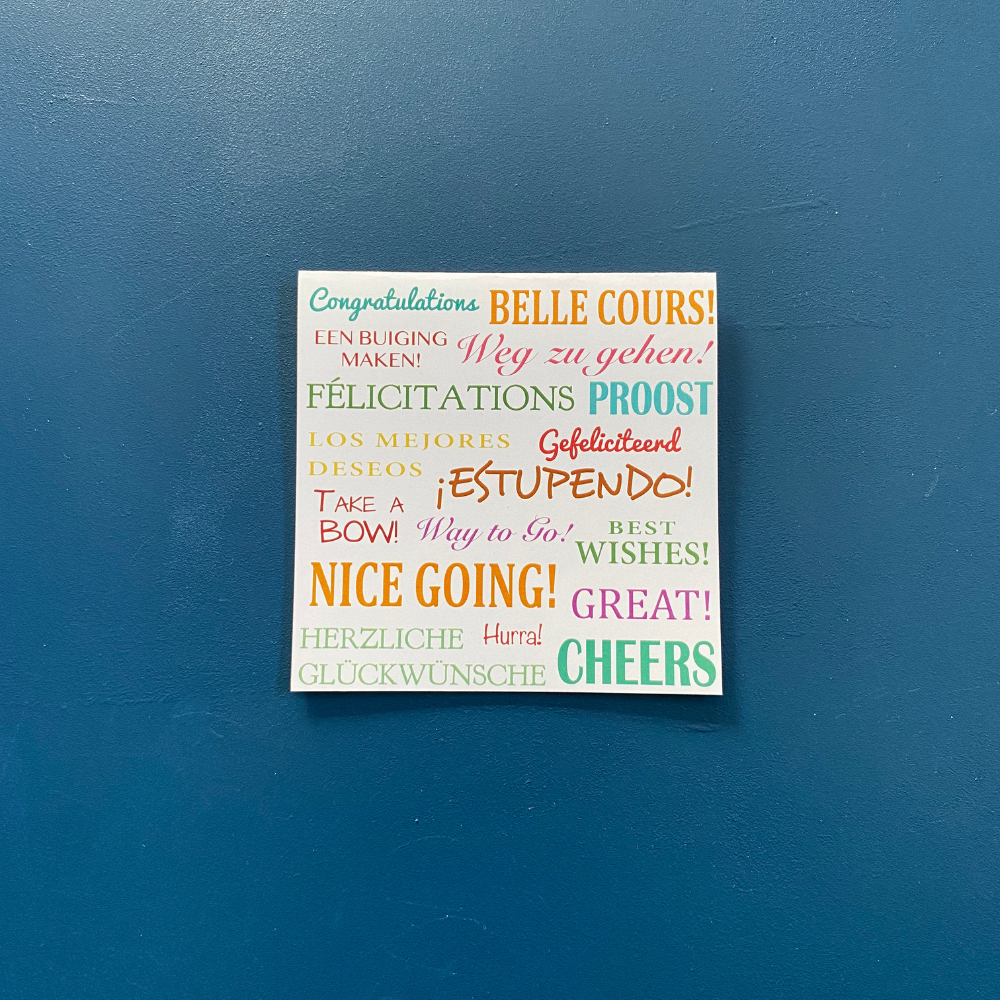 Congratulations BELLE COURS!
EEN BUIGING
MAKEN!
Weg zu gehen!
FÉLICITATIONS PROOST
LOS MEJORES
DESEOS
Gefeliciteerd
¡ESTUPENDO!
TAKE A
BOW!
Way to Go!
BEST
WISHES!
NICE GOING!
GREAT!
HERZLICHE
GLÜCKWÜNSCHE
Hurra!
CHEERS